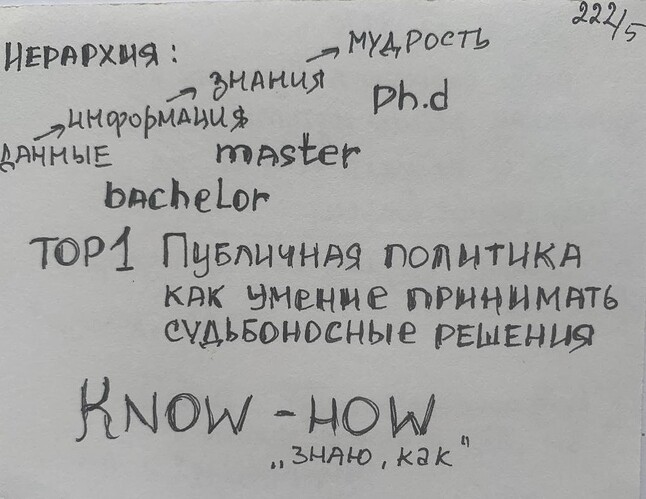 222/5
ИЕРАРХИЯ:
→ МУДРОСТЬ
→ ЗНАНИЯ
Ph.d
→ ИНФОРМАЦИЯ
ДАННЫЕ
master
bachelor
TOP1 Публичная политика
как умение принимать
судьбоносные решения
KNOW-HOW
„знаю, как"